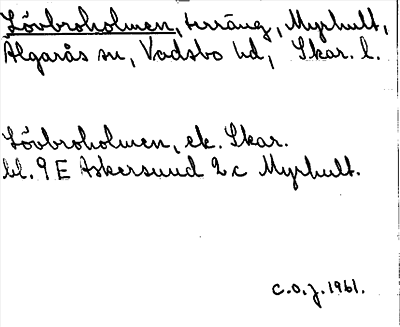 Lövbroholmen, terräng, Myrhult,
Älgarås sn, Vadsbo hd, Skar. l.
Lövbroholmen, ek. Skar.
bl. 9 E Askersund 2 c Myrhult.
C.O.J. 1961.